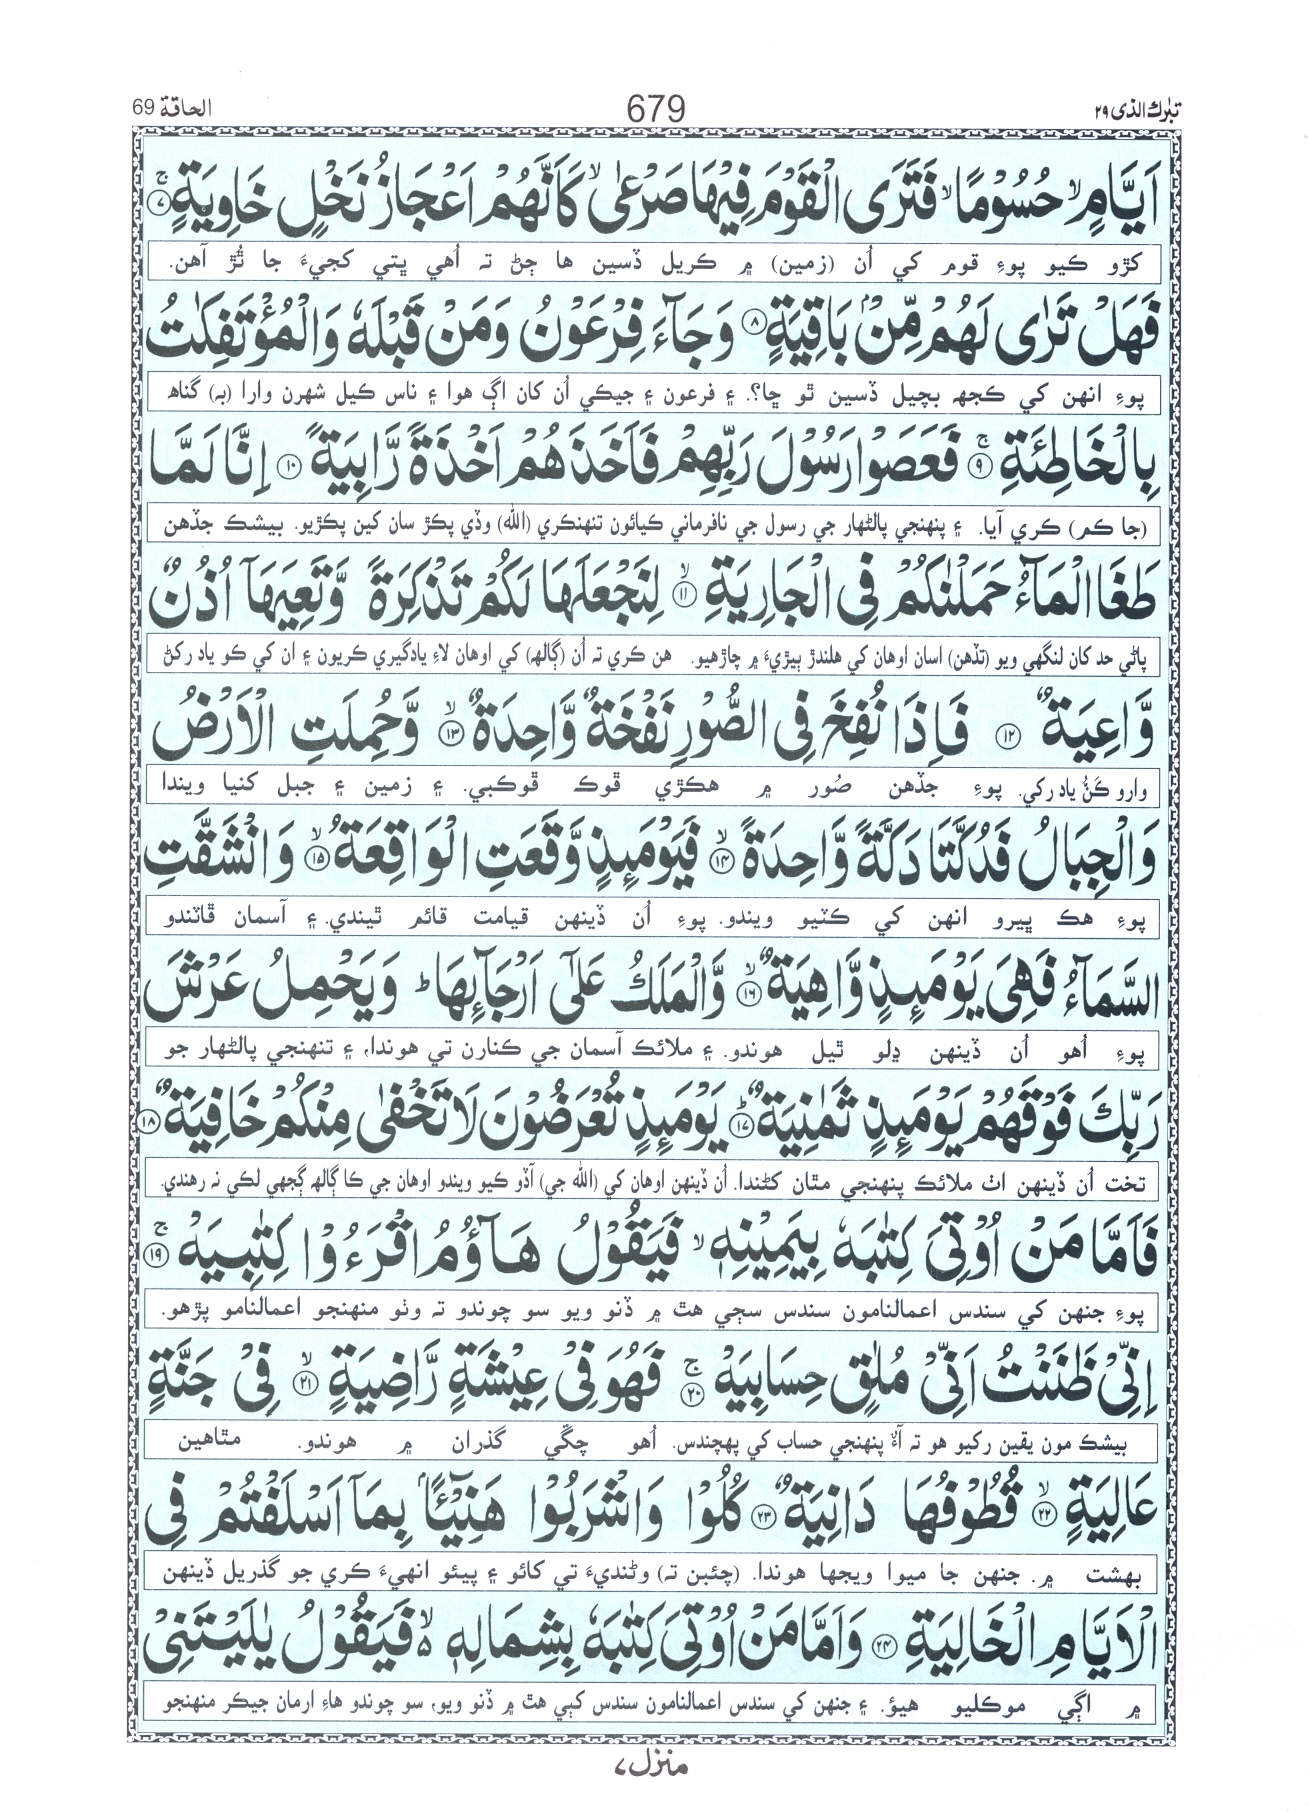 تبٰرك الذى ٢٩
679
الحاقة 69
اَيَّامٍ ۙ حُسُوْمًا ۙ فَتَرَى الْقَوْمَ فِيْهَا صَرْعٰى ۙ كَاَنَّهُمْ اَعْجَازُ نَخْلٍ خَاوِيَةٍ ۚ ﴿٧﴾
کڙو ڪيو پوءِ قوم کي اُن (زمين) ۾ ڪريل ڏسين ها ڄڻ تہ اُهي ڀتي کجيءَ جا ٿُڙ آهن.
فَهَلْ تَرٰى لَهُمْ مِّنْۢ بَاقِيَةٍ ﴿٨﴾ وَجَآءَ فِرْعَوْنُ وَمَنْ قَبْلَهٗ وَالْمُؤْتَفِكٰتُ
پوءِ انهن کي ڪجهہ بچيل ڏسين ٿو ڇا؟. ۽ فرعون ۽ جيڪي اُن کان اڳ هوا ۽ ناس ڪيل شهرن وارا (بہ) گناھ
بِالْخَاطِئَةِ ۚ ﴿٩﴾ فَعَصَوْا رَسُوْلَ رَبِّهِمْ فَاَخَذَهُمْ اَخْذَةً رَّابِيَةً ﴿١٠﴾ اِنَّا لَمَّا
(جا ڪم) ڪري آيا. ۽ پنهنجي پالڻهار جي رسول جي نافرماني ڪيائون تنهنڪري (الله) وڏي پڪڙ سان کين پڪڙيو. بيشڪ جڏهن
طَغَا الْمَآءُ حَمَلْنٰكُمْ فِى الْجَارِيَةِ ۙ ﴿١١﴾ لِنَجْعَلَهَا لَكُمْ تَذْكِرَةً وَّتَعِيَهَآ اُذُنٌ
پاڻي حد کان لنگهي ويو (تڏهن) اسان اوهان کي هلندڙ ٻيڙيءَ ۾ چاڙهيو. هن ڪري تہ اُن (ڳالھ) کي اوهان لاءِ يادگيري ڪريون ۽ ان کي ڪو ياد رکڻ
وَّاعِيَةٌ ﴿١٢﴾ فَاِذَا نُفِخَ فِى الصُّوْرِ نَفْخَةٌ وَّاحِدَةٌ ۙ ﴿١٣﴾ وَّحُمِلَتِ الْاَرْضُ
وارو ڪَنُ ياد رکي. پوءِ جڏهن صُور ۾ هڪڙي ڦوڪ ڦوڪبي. ۽ زمين ۽ جبل کنيا ويندا
وَالْجِبَالُ فَدُكَّتَا دَكَّةً وَّاحِدَةً ۙ ﴿١٤﴾ فَيَوْمَئِذٍ وَّقَعَتِ الْوَاقِعَةُ ۙ ﴿١٥﴾ وَانْشَقَّتِ
پوءِ هڪ ڀيرو انهن کي ڪٽيو ويندو. پوءِ اُن ڏينهن قيامت قائم ٿيندي. ۽ آسمان ڦاٽندو
السَّمَآءُ فَهِىَ يَوْمَئِذٍ وَّاهِيَةٌ ۙ ﴿١٦﴾ وَّالْمَلَكُ عَلٰٓى اَرْجَآئِهَا ؕ وَيَحْمِلُ عَرْشَ
پوءِ اُهو اُن ڏينهن ڍلو ٿيل هوندو. ۽ ملائڪ آسمان جي ڪنارن تي هوندا، ۽ تنهنجي پالڻهار جو
رَبِّكَ فَوْقَهُمْ يَوْمَئِذٍ ثَمٰنِيَةٌ ؕ ﴿١٧﴾ يَوْمَئِذٍ تُعْرَضُوْنَ لَا تَخْفٰى مِنْكُمْ خَافِيَةٌ ﴿١٨﴾
تخت اُن ڏينهن اٺ ملائڪ پنهنجي مٿان کڻندا. اُن ڏينهن اوهان کي (الله جي) آڏو ڪيو ويندو اوهان جي ڪا ڳالھ ڳجهي لڪي نہ رهندي.
فَاَمَّا مَنْ اُوْتِىَ كِتٰبَهٗ بِيَمِيْنِهٖ ۙ فَيَقُوْلُ هَآؤُمُ اقْرَءُوْا كِتٰبِيَهْ ۚ ﴿١٩﴾
پوءِ جنهن کي سندس اعمالنامون سندس سڄي هٿ ۾ ڏنو ويو سو چوندو تہ وٺو منهنجو اعمالنامو پڙهو.
اِنِّىْ ظَنَنْتُ اَنِّىْ مُلٰقٍ حِسَابِيَهْ ۚ ﴿٢٠﴾ فَهُوَ فِىْ عِيْشَةٍ رَّاضِيَةٍ ۙ ﴿٢١﴾ فِىْ جَنَّةٍ
بيشڪ مون يقين رکيو هو تہ آءٌ پنهنجي حساب کي پهچندس. اُهو چڱي گذران ۾ هوندو. مٿاهين
عَالِيَةٍ ۙ ﴿٢٢﴾ قُطُوْفُهَا دَانِيَةٌ ﴿٢٣﴾ كُلُوْا وَاشْرَبُوْا هَنِيْٓئًۢا بِمَآ اَسْلَفْتُمْ فِى
بهشت ۾. جنهن جا ميوا ويجها هوندا. (چئبن تہ) وڻنديءَ تي کائو ۽ پيئو انهيءَ ڪري جو گذريل ڏينهن
الْاَيَّامِ الْخَالِيَةِ ﴿٢٤﴾ وَاَمَّا مَنْ اُوْتِىَ كِتٰبَهٗ بِشِمَالِهٖ ۙ فَيَقُوْلُ يٰلَيْتَنِىْ
۾ اڳي موڪليو هيؤ. ۽ جنهن کي سندس اعمالنامون سندس کٻي هٿ ۾ ڏنو ويو، سو چوندو هاءِ ارمان جيڪر منهنجو
منزل ٧